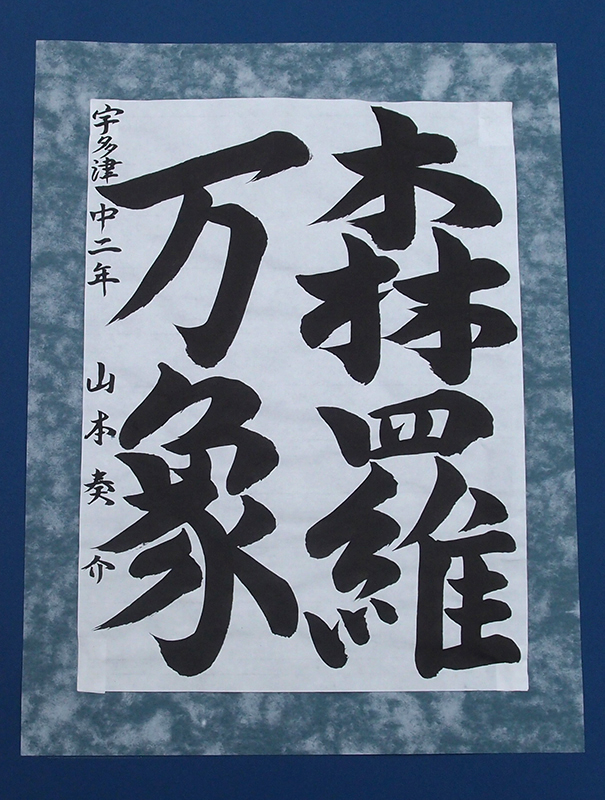 森羅
万象
宇多津中二年 山本奏介